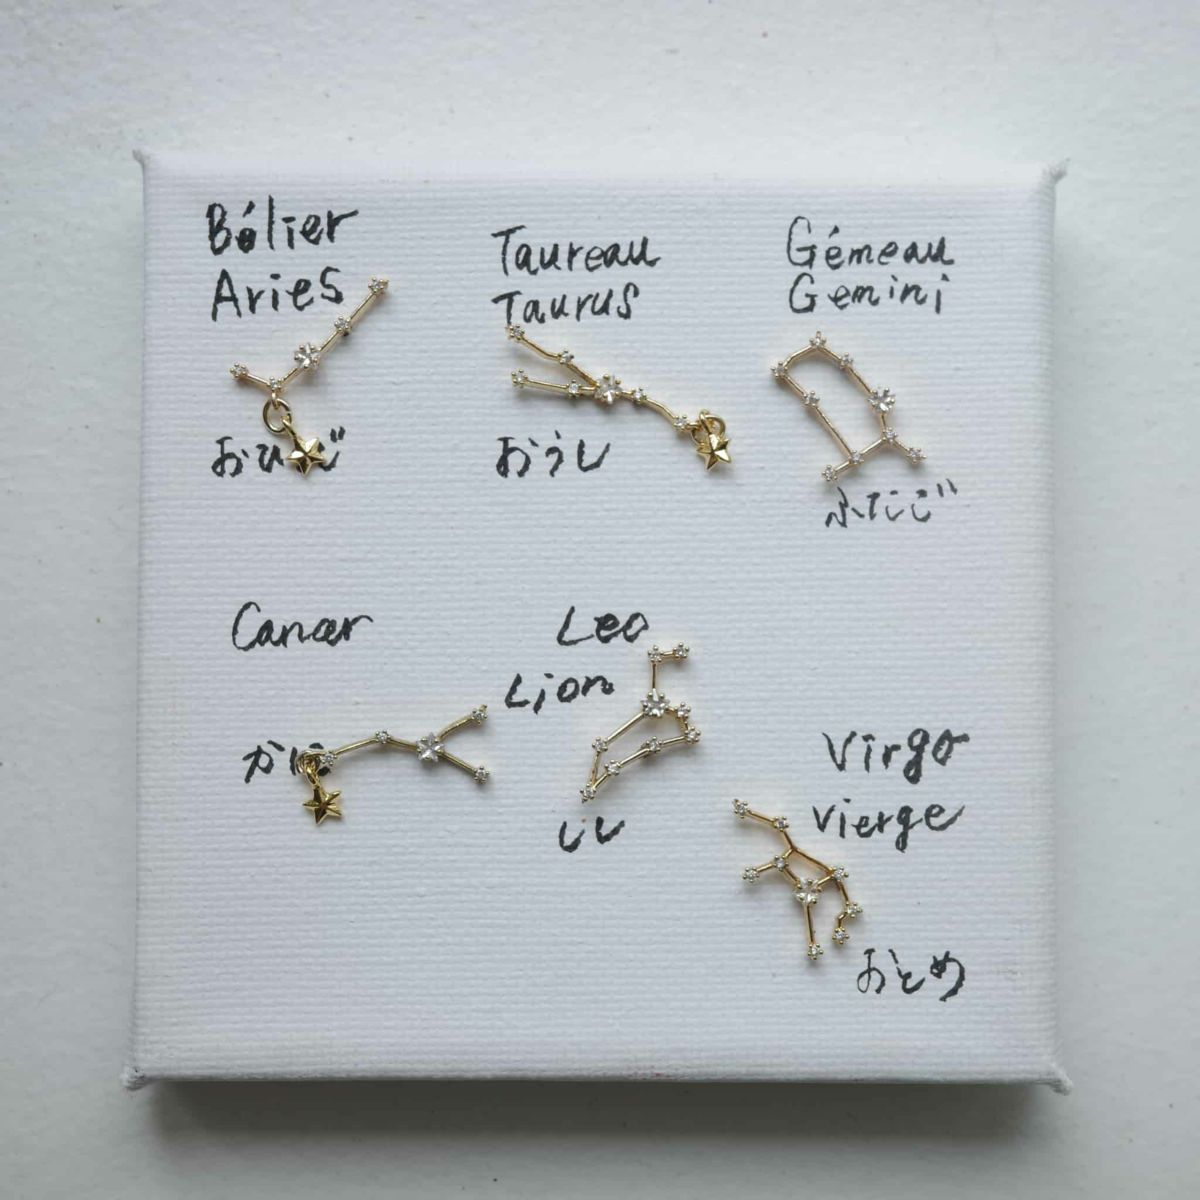 Bélier
Aries
Taureau
Taurus
Gémeau
Gemini
おひ じ
おうし
ふたご
Cancer
Leo
Lion
かに
しし
Virgo
Vierge
おとめ